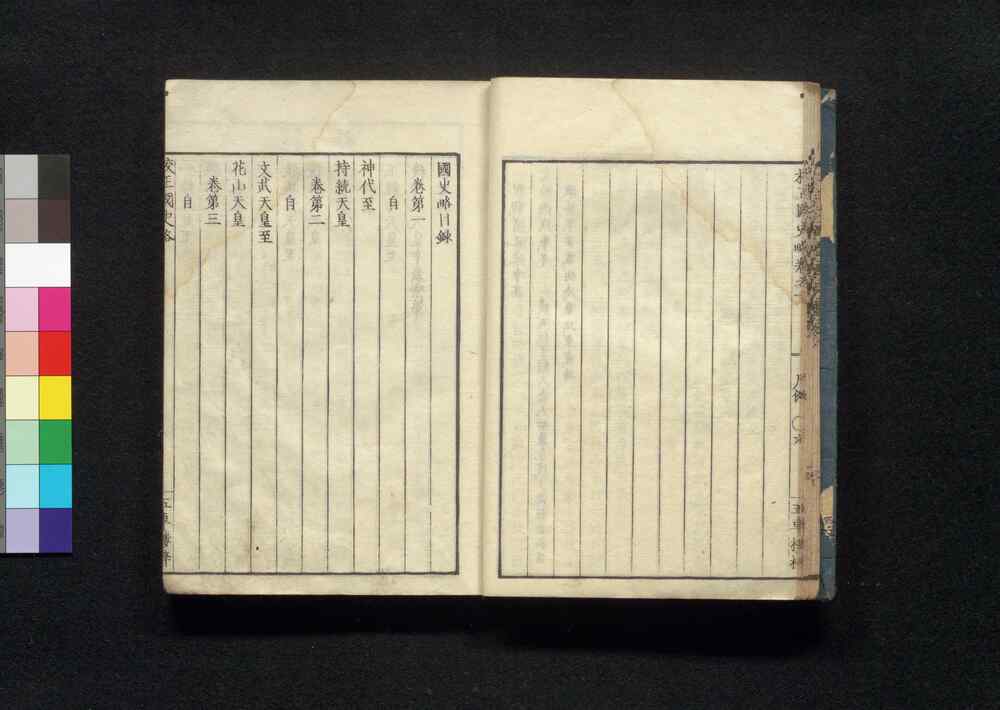 國史略目録
卷第一
自
神代至
持統天皇
卷第二
自
文武天皇至
花山天皇
卷第三
自
校正國史略
五車樓梓